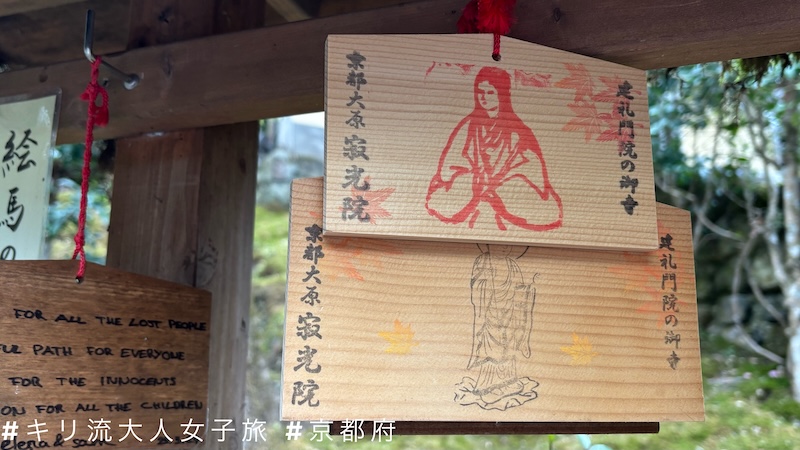 京都大原 寂光院
建礼門院の御寺
京都大原 寂光院
建礼門院の御寺
絵馬の
FOR ALL THE LOST PEOPLE
PATH FOR EVERYONE
FOR THE INNOCENTS
ON FOR ALL THE CHILDREN
#キリ流大人女子旅 #京都府